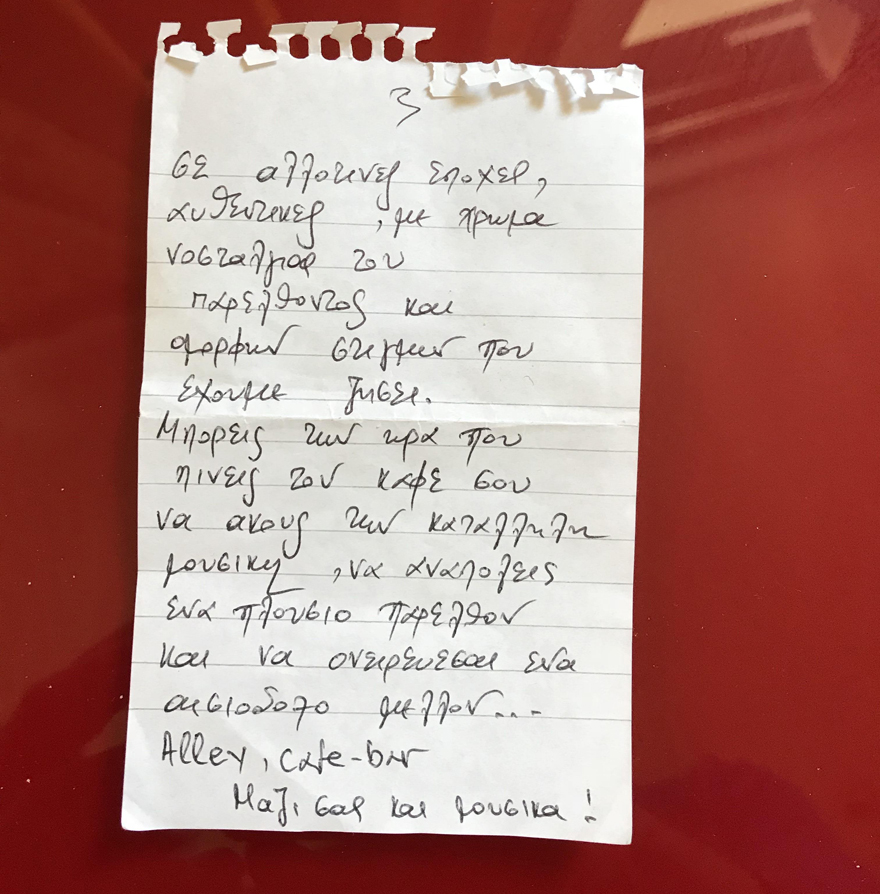 3
σε αλλοτινες εποχες,
αυθεντικες , με χρωμα
νοσταλγιας του
παρελθοντος και
ομορφων στιγμων που
εχουμε ζησει.
Μπορεις την ωρα που
πινεις τον καφε σου
να ακους την καταλληλη
μουσικη , να αναπολεις
ενα πλουσιο παρελθον
και να ονειρευεσαι ενα
αισιοδοξο μελλον...-
Alley, cafe-bar
Μαζι σας και μουσικα!